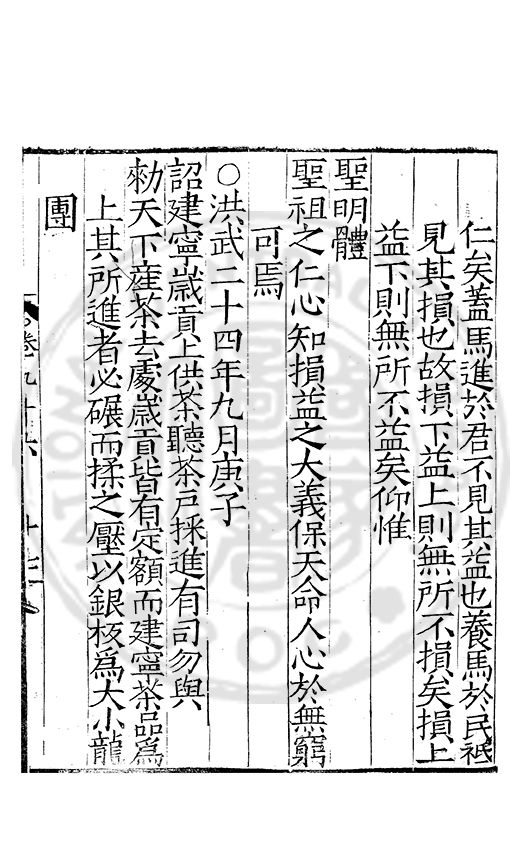 仁矣蓋馬進於君不見其益也養馬於民祗
見其損也故損下益上則無所不損矣損上
益下則無所不益矣仰惟
聖明體
聖祖之仁心知損益之大義保天命人心於無窮
可焉
○洪武二十四年九月庚子
詔建寧歲貢上供茶聽茶戶採進有司勿與
勑天下產茶去處歲貢皆有定額而建寧茶品爲
上其所進者必碾而揉之壓以銀板爲大小龍
團
卷九十六
十七